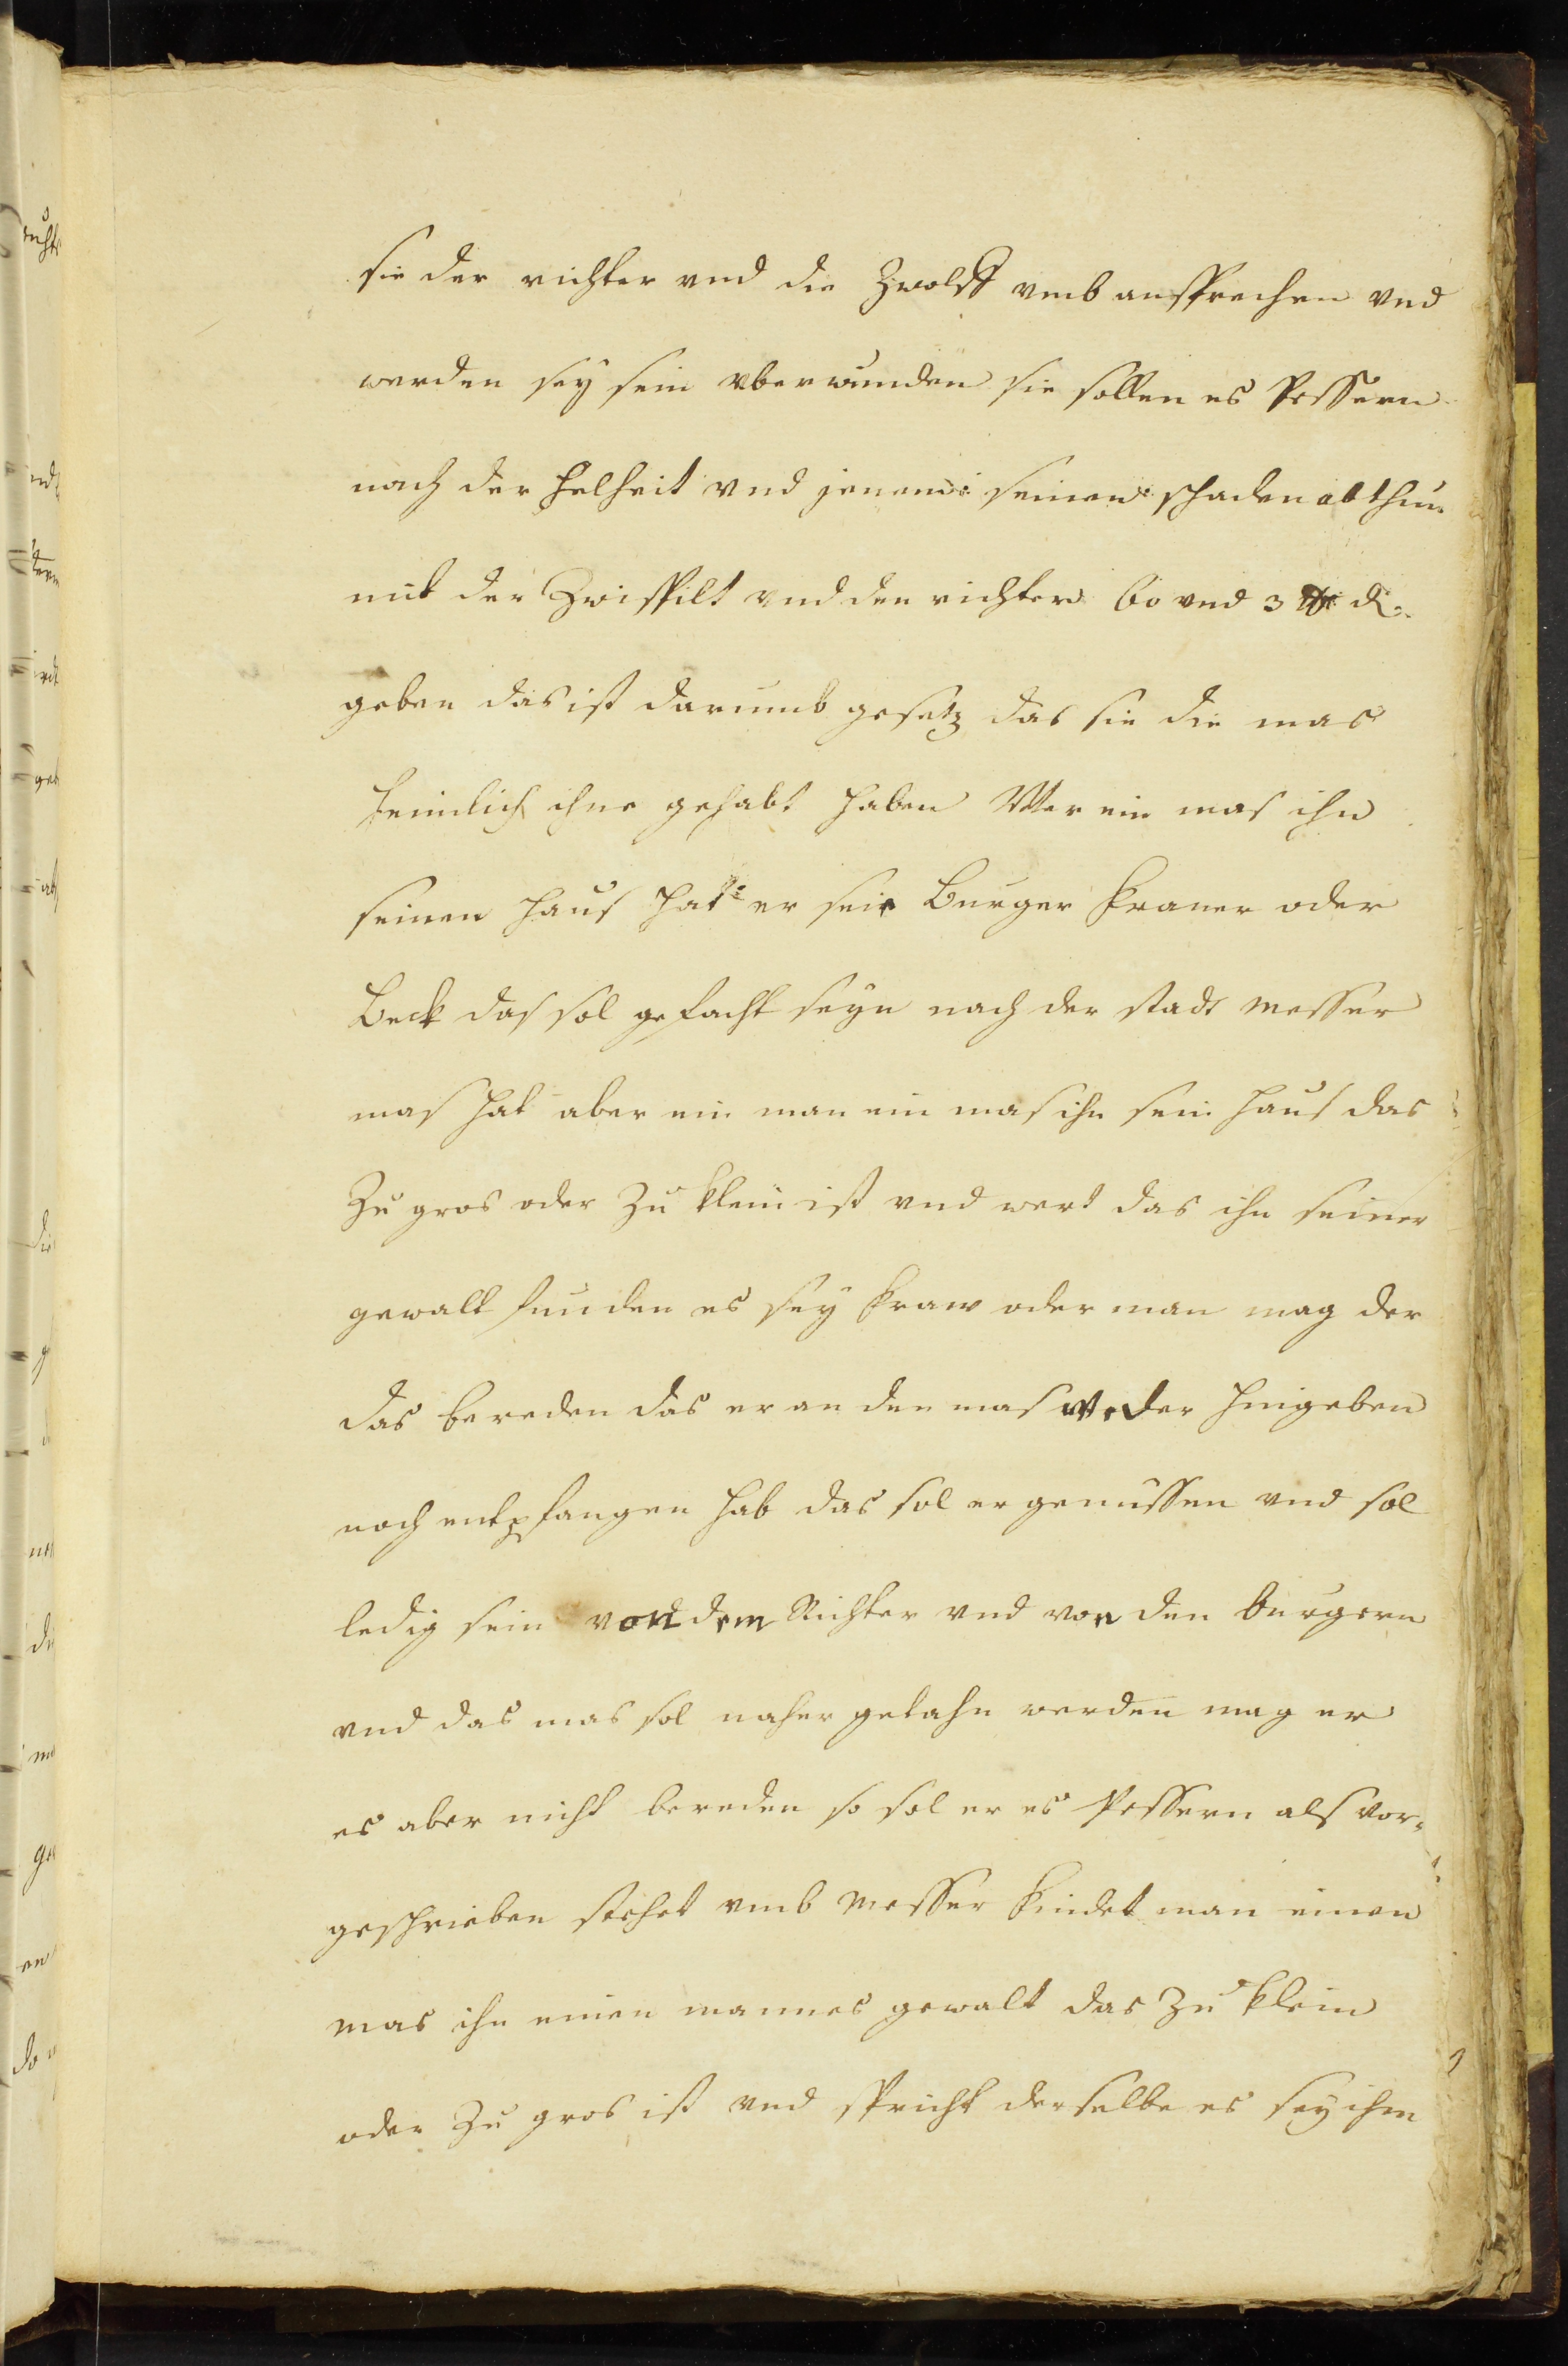 sie der richter vnd die Zwolff vmb ansprechen vnd
werden sey sein vberwunden sie sollen es Pessern
nach der helheit vnd jenem seinen schaden abthun
mit der Zwispilt vnd den richter 60 vnd 3 ℔ d.
geben das ist darumb gesetz das sie die mas
heimlich ihne gehabt haben Wer ein mas ihn
seinen haus hat er sei Burger kramer oder
Beck das sol gefacht seyn nach der stadt messer
mas hat aber ein man ein mas ihn sein haus das
Zu gros oder Zu klein ist vnd wert das ihn seiner
gewalt funden es sey fraw oder man mag der
das bereden das er an den mas weder hingeben
noch entpfangen hab das sol er genüssen vnd sol
ledig sein von dem Richter vnd von den burgern
vnd das mas sol naher getahn werden mag er
es aber nicht bereden so sol er es Pessern als vor-
geschrieben stehet vmb messer findet man einen
mas ihn einen mannes gewalt das Zu klein
oder Zu gros ist vnd spricht derselbe es sey ihm